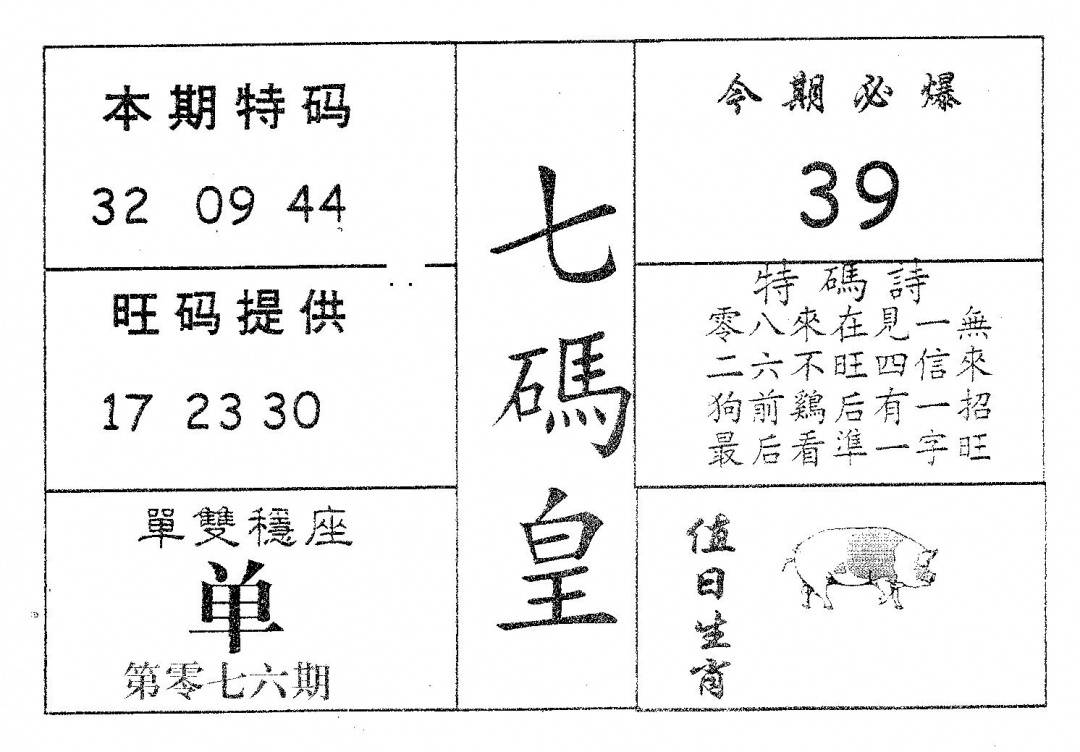 本期特码
32 09 44
旺码提供
17 23 30
單雙穩座
单
第零七六期
七碼皇
今期必爆
39
特碼詩
零八來在見一無
二六不旺四信來
狗前鷄后有一招
最后看準一字旺
值日生肖